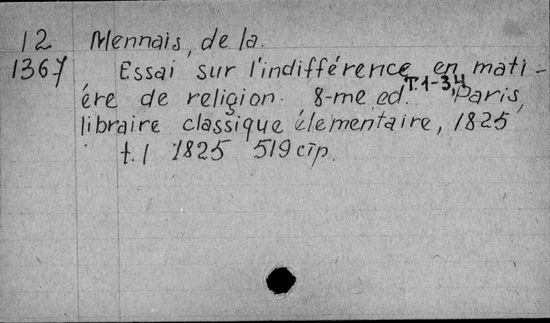 12 Mennais, de la.
1367 Essai sur l'indifférence en mati-
ére de religion. 8-me ed. T. 1-3,4 Paris,
libraire classique élementaire, 1825
t. 1 1825 519 стр.